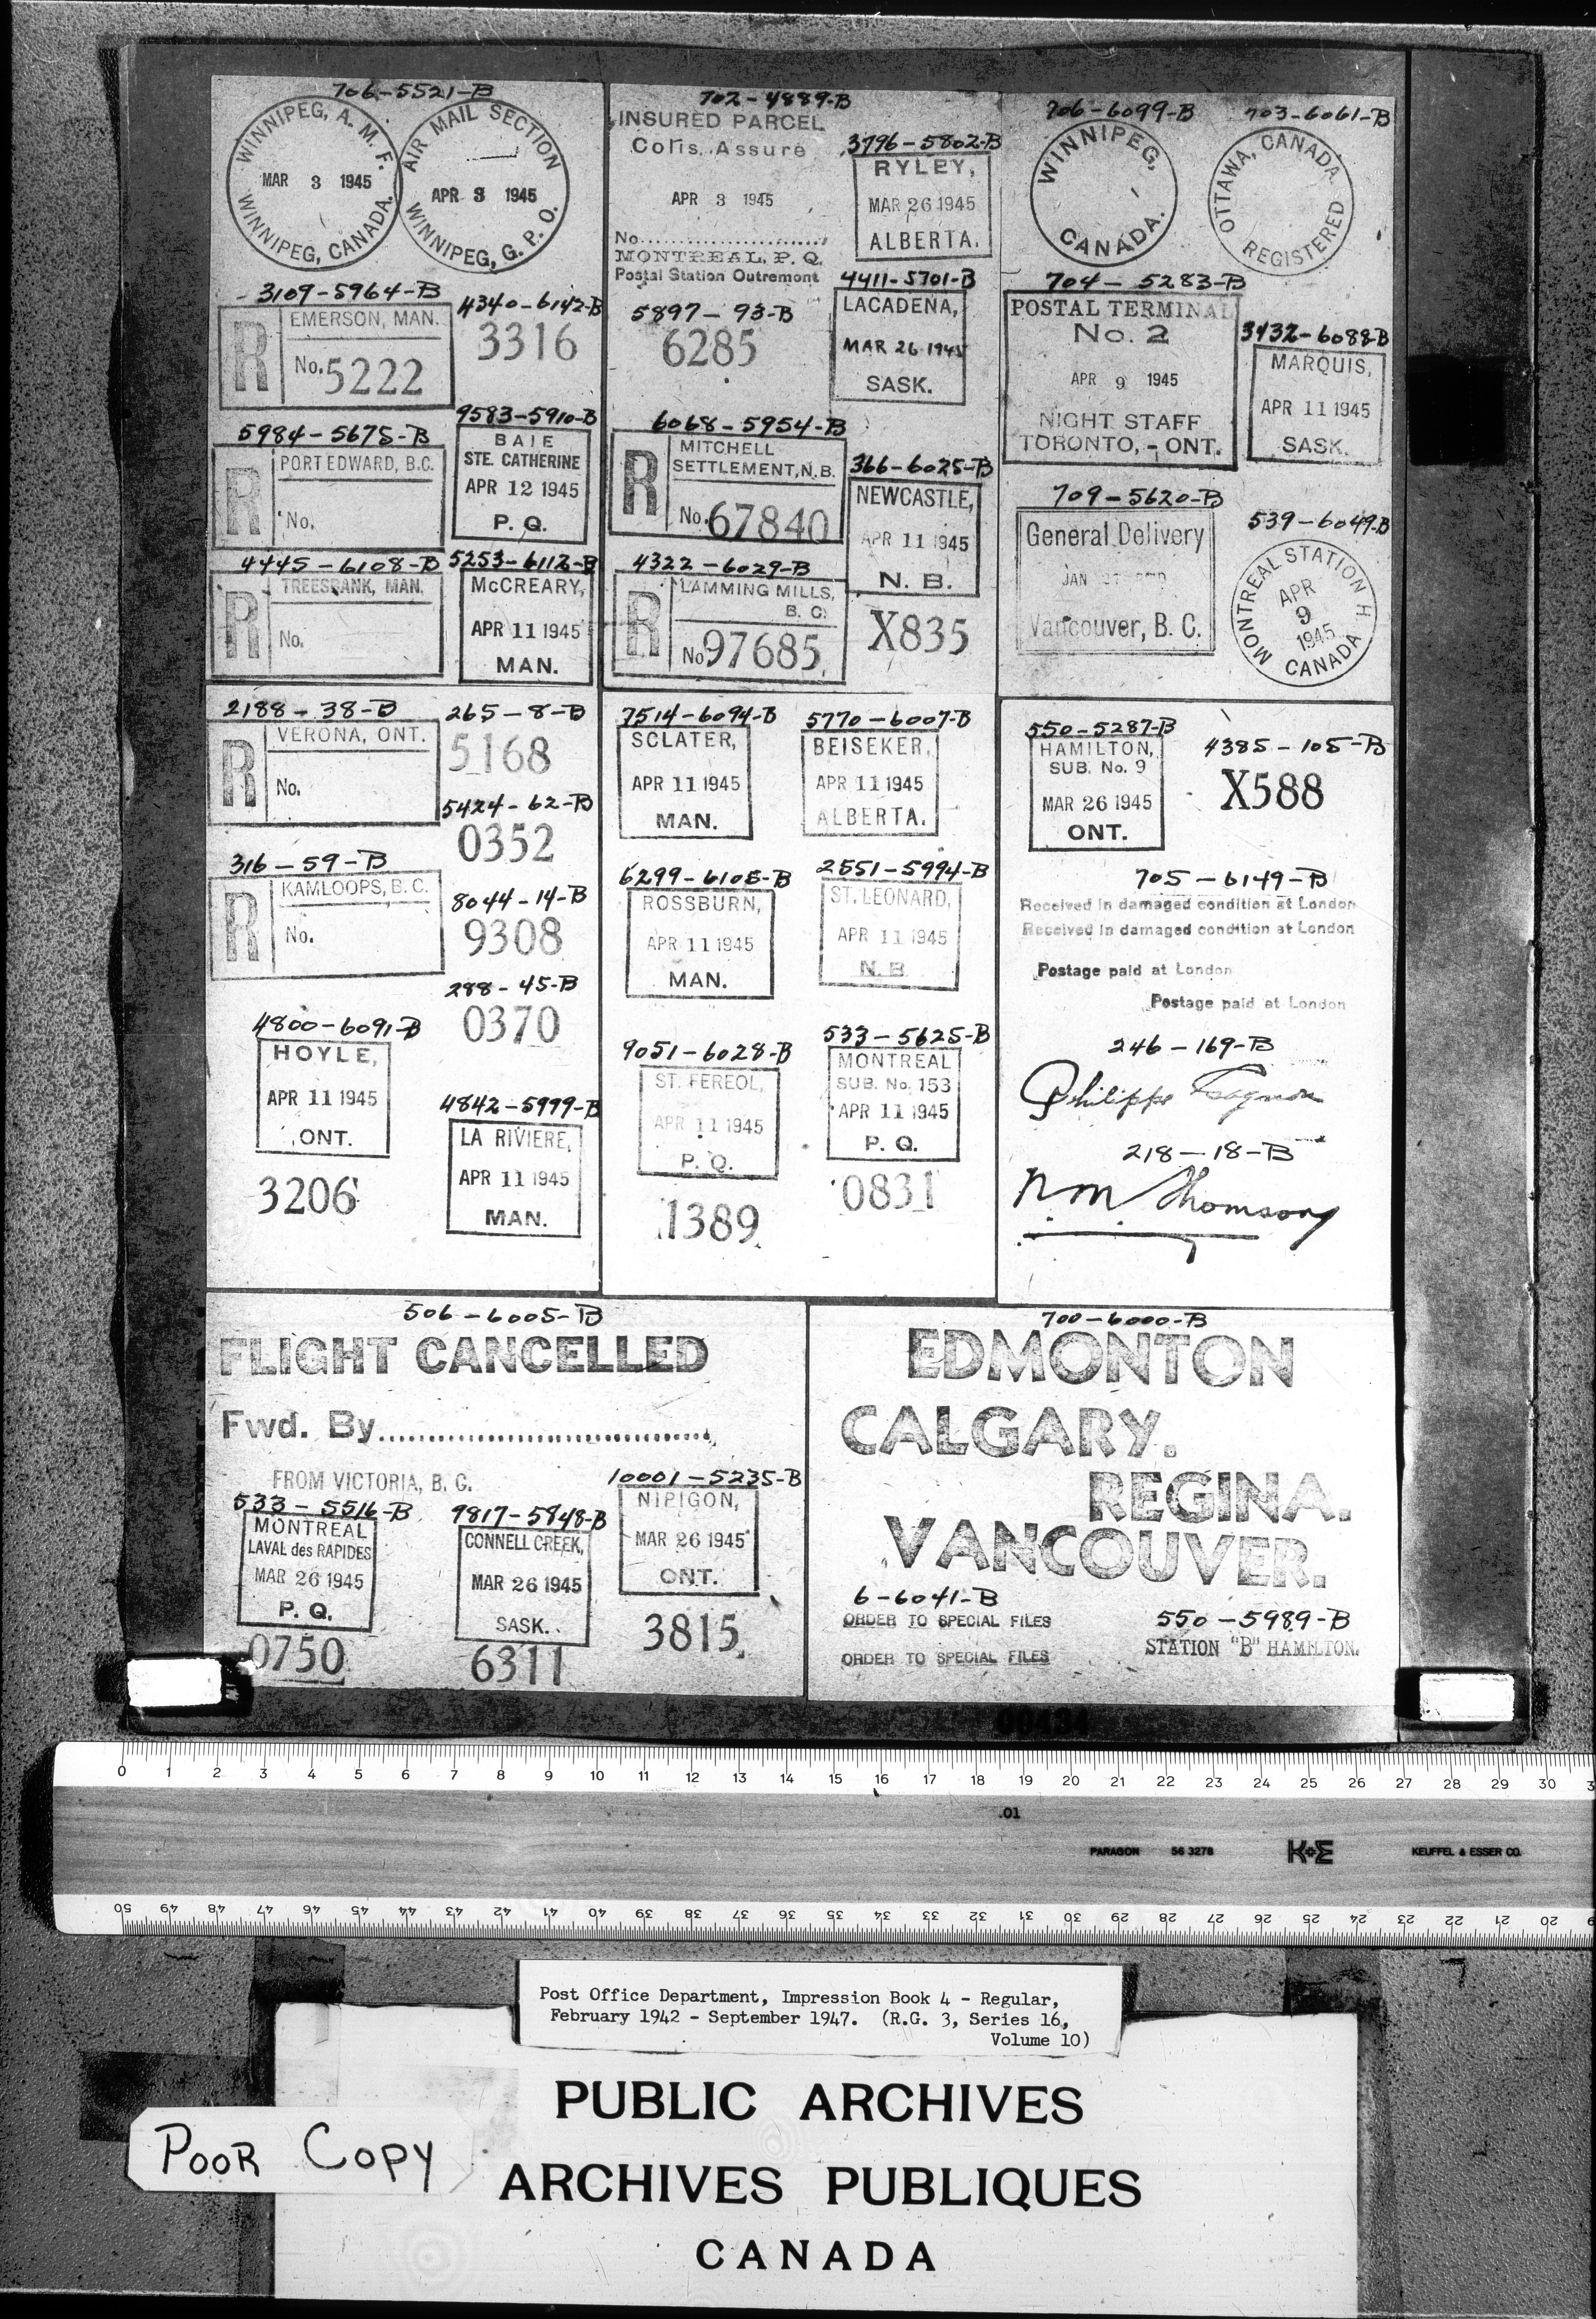 706-5521-B
WINNIPEG, A. M. F.
MAR 3 1945
WINNIPEG, CANADA.
AIR MAIL SECTION
APR 3 1945
WINNIPEG, G. P. O.
3109-5964-B
R EMERSON, MAN.
No. 5222
4340-6142-B
3316
5984-5675-B
R PORT EDWARD, B.C.
No.
9583-5910-B
BAIE
STE. CATHERINE
APR 12 1945
P. Q.
4445-6108-B
R TREESBANK, MAN.
No.
5253-6112-B
McCREARY,
APR 11 1945
MAN.
702-4889-B
INSURED PARCEL
Colis Assuré
APR 3 1945
No.
MONTREAL, P. Q.
Postal Station Outremont
3796-5802-B
RYLEY,
MAR 26 1945
ALBERTA.
5897-93-B
6285
4411-5701-B
LACADENA,
MAR 26 1945
SASK.
6068-5954-B
R MITCHELL
SETTLEMENT, N.B.
No. 67840
366-6025-B
NEWCASTLE,
APR 11 1945
N. B.
X835
4322-6029-B
R LAMMING MILLS,
B. C.
No 97685
706-6099-B
WINNIPEG,
CANADA.
703-6061-B
OTTAWA, CANADA.
REGISTERED
704-5283-B
POSTAL TERMINAL
No. 2
APR 9 1945
NIGHT STAFF
TORONTO, - ONT.
3432-6088-B
MARQUIS,
APR 11 1945
SASK.
709-5620-B
General Delivery
JAN 27
Vancouver, B. C.
539-6049-B
MONTREAL STATION H
APR
9
1945
CANADA
2188-38-B
R VERONA, ONT.
No.
265-8-B
5168
5424-62-B
0352
316-59-B
R KAMLOOPS, B. C.
No.
8044-14-B
9308
288-45-B
0370
4800-6091-B
HOYLE,
APR 11 1945
ONT.
3206
4842-5999-B
LA RIVIERE,
APR 11 1945
MAN.
7514-6094-B
SCLATER,
APR 11 1945
MAN.
5770-6007-B
BEISEKER,
APR 11 1945
ALBERTA.
6299-6105-B
ROSSBURN,
APR 11 1945
MAN.
2551-5994-B
ST. LEONARD,
APR 11 1945
N. B.
9051-6028-B
ST. FEREOL,
APR 11 1945
P. Q.
1389
533-5625-B
MONTREAL
SUB. No. 153
APR 11 1945
P. Q.
0831
550-5287-B
HAMILTON,
SUB. No. 9
MAR 26 1945
ONT.
4385-105-B
X588
705-6149-B
Received in damaged condition at London
Received in damaged condition at London
Postage paid at London
Postage paid at London
246-169-B
Philippe Gagnon
218-18-B
Thomson
506-6005-B
FLIGHT CANCELLED
Fwd. By
FROM VICTORIA, B. C.
533-5516-B
MONTREAL
LAVAL des RAPIDES
MAR 26 1945
P. Q.
0750
9817-5848-B
CONNELL CREEK,
MAR 26 1945
SASK.
6311
10001-5235-B
NIPIGON,
MAR 26 1945
ONT.
3815
700-6000-B
EDMONTON
CALGARY.
REGINA.
VANCOUVER.
6-6041-B
ORDER TO SPECIAL FILES
ORDER TO SPECIAL FILES
550-5989-B
STATION "B" HAMILTON.
00494
0 1 2 3 4 5 6 7 8 9 10 11 12 13 14 15 16 17 18 19 20 21 22 23 24 25 26 27 28 29 30
.01
PARAGON 56 3278 K+E KEUFFEL & ESSER CO.
50 49 48 47 46 45 44 43 42 41 40 39 38 37 36 35 34 33 32 31 30 29 28 27 26 25 24 23 22 21 20
Post Office Department, Impression Book 4 - Regular,
February 1942 - September 1947. (R.G. 3, Series 16,
Volume 10)
PUBLIC ARCHIVES
ARCHIVES PUBLIQUES
CANADA
POOR COPY